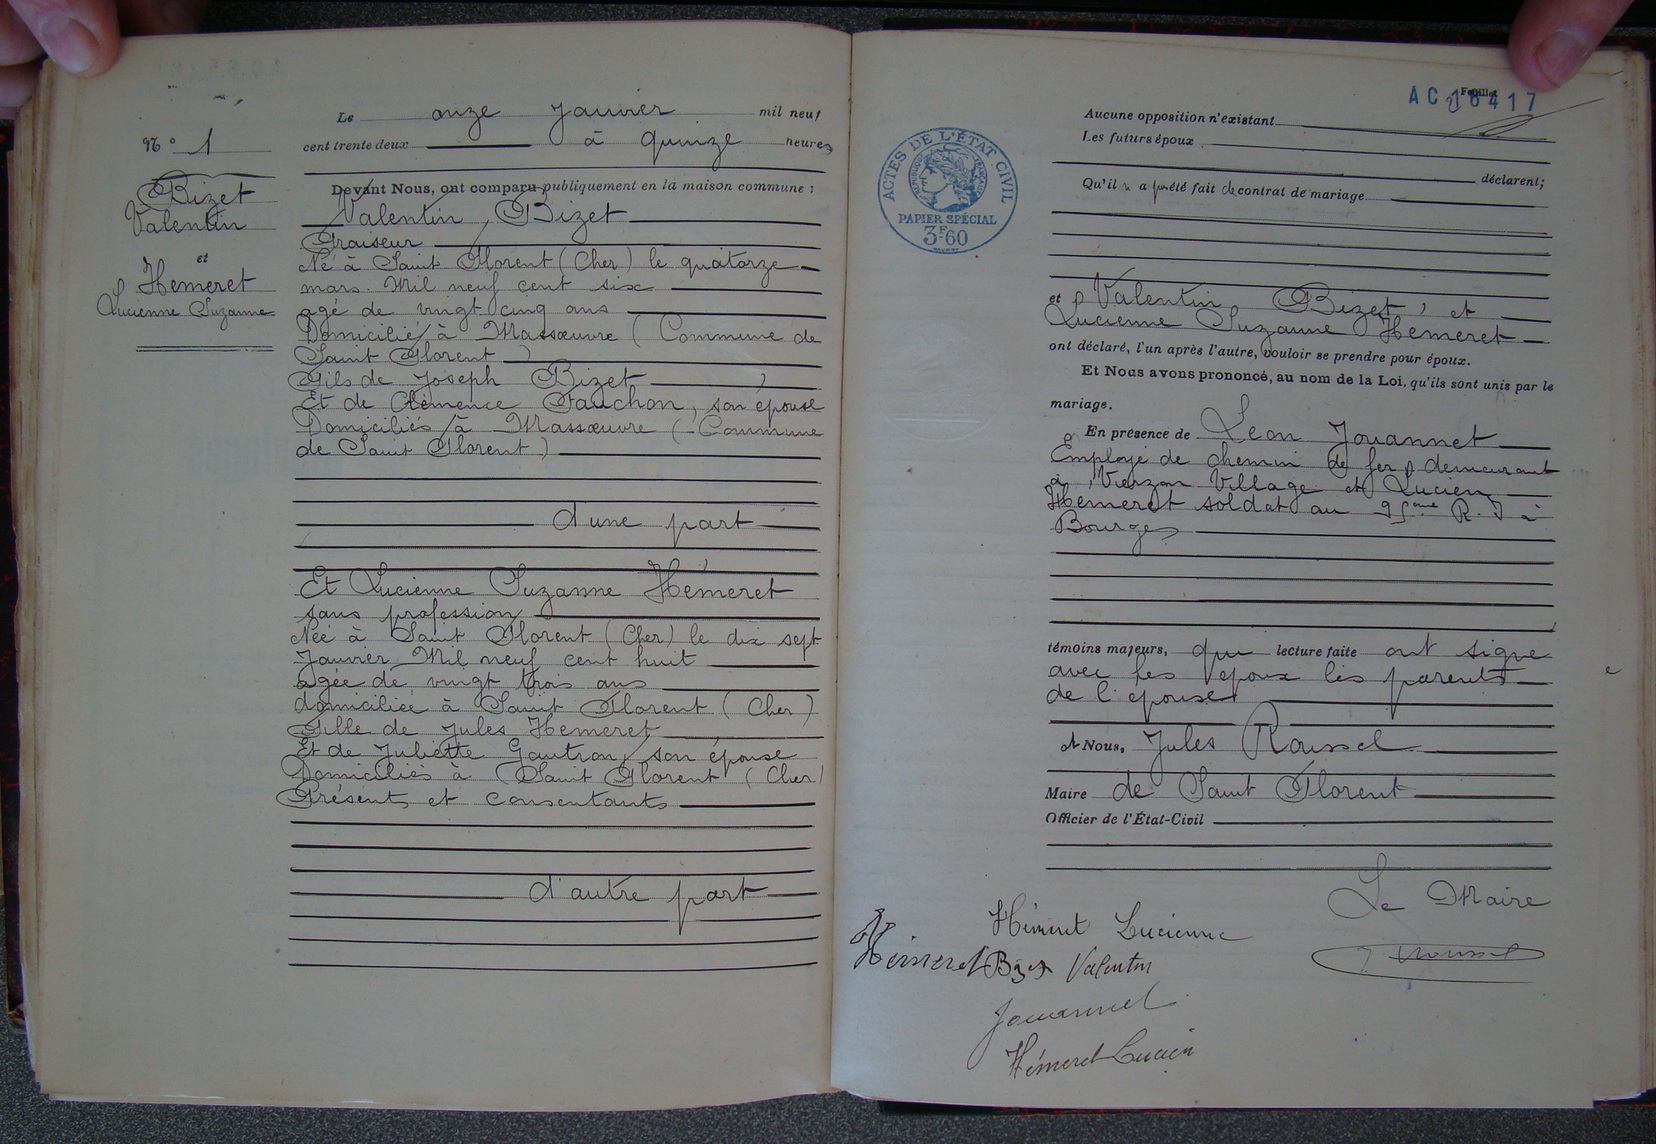 N° 1
Bizet
Valentin
et
Hemeret
Lucienne Suzanne
Le onze Janvier mil neuf
cent trente deux à quinze heures
Devant Nous, ont comparu publiquement en la maison commune :
Valentin, Bizet
Graiseur
Né à Saint Florent (Cher) le quatorze
mars Mil neuf cent six
agé de vingt cinq ans
Domicilié à Massœuvre (Commune de
Saint Florent)
Fils de Joseph Bizet
Et de Clémence Fauchon, son épouse
Domiciliés à Massœuvre (Commune
de Saint Florent)
d'une part
Et Lucienne Suzanne Hémeret
sans profession
Née à Saint Florent (Cher) le dix sept
Janvier Mil neuf cent huit
agée de vingt trois ans
domiciliée à Saint Florent (Cher)
Fille de Jules Hemeret
Et de Juliette Gautron, son épouse
Domiciliés à Saint Florent (Cher)
Présents et consentants
d'autre part
AC 16417
Feuillet
2
Aucune opposition n'existant
Les futurs époux
déclarent;
Qu'il n'a pas été fait de contrat de mariage
ACTES DE L'ÉTAT CIVIL
RÉPUBLIQUE FRANÇAISE
PAPIER SPÉCIAL
3F60
et Valentin Bizet, et
Lucienne Suzanne Hémeret
ont déclaré, l'un après l'autre, vouloir se prendre pour époux.
Et Nous avons prononcé, au nom de la Loi, qu'ils sont unis par le
mariage.
En présence de Léon Jouannet
Employé de chemin de fer, demeurant
à Vierzon Village et Lucien
Hémeret soldat au 95ème R. I à
Bourges
témoins majeurs, qui lecture faite ont signé
avec les époux les parents
de l'épouse
et Nous, Jules Roussel
Maire de Saint Florent
Officier de l'État-Civil
Le Maire
Hémeret Lucienne
Hémeret Bizet Valentin
J Roussel
Jouannet
Hémeret Lucien